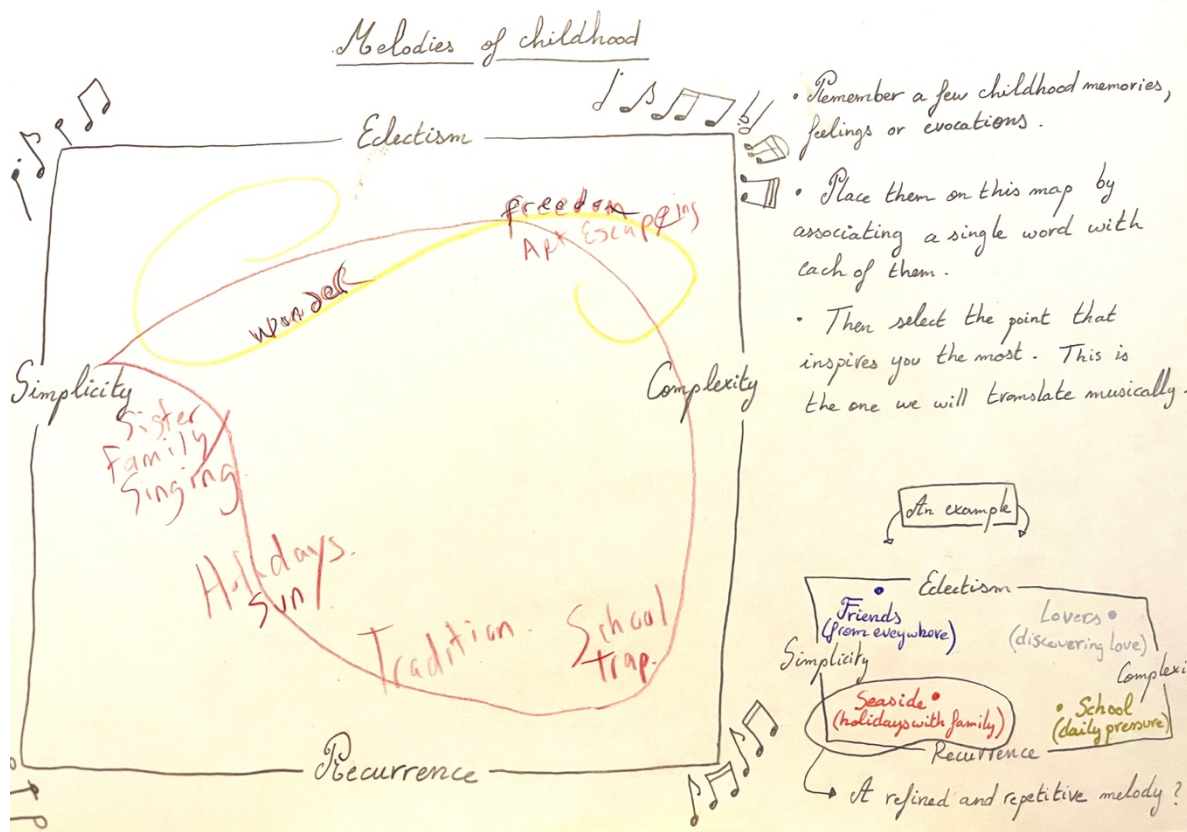 Melodies of childhood
Eclectism
Simplicity
Complexity
Recurrence
freedom
Art Escapping
Wonder
Sister
Family
Singing
Holidays.
Sun
Tradition.
School
trap.
• Remember a few childhood memories,
feelings or evocations.
• Place them on this map by
associating a single word with
each of them.
• Then select the point that
inspires you the most. This is
the one we will translate musically.
An example
Eclectism
Friends
(from eveywhere)
Lovers
(discovering love)
Simplicity
Complexi
Seaside
(holidays with family)
• School
(daily pressure)
Recurrence
A refined and repetitive melody ?